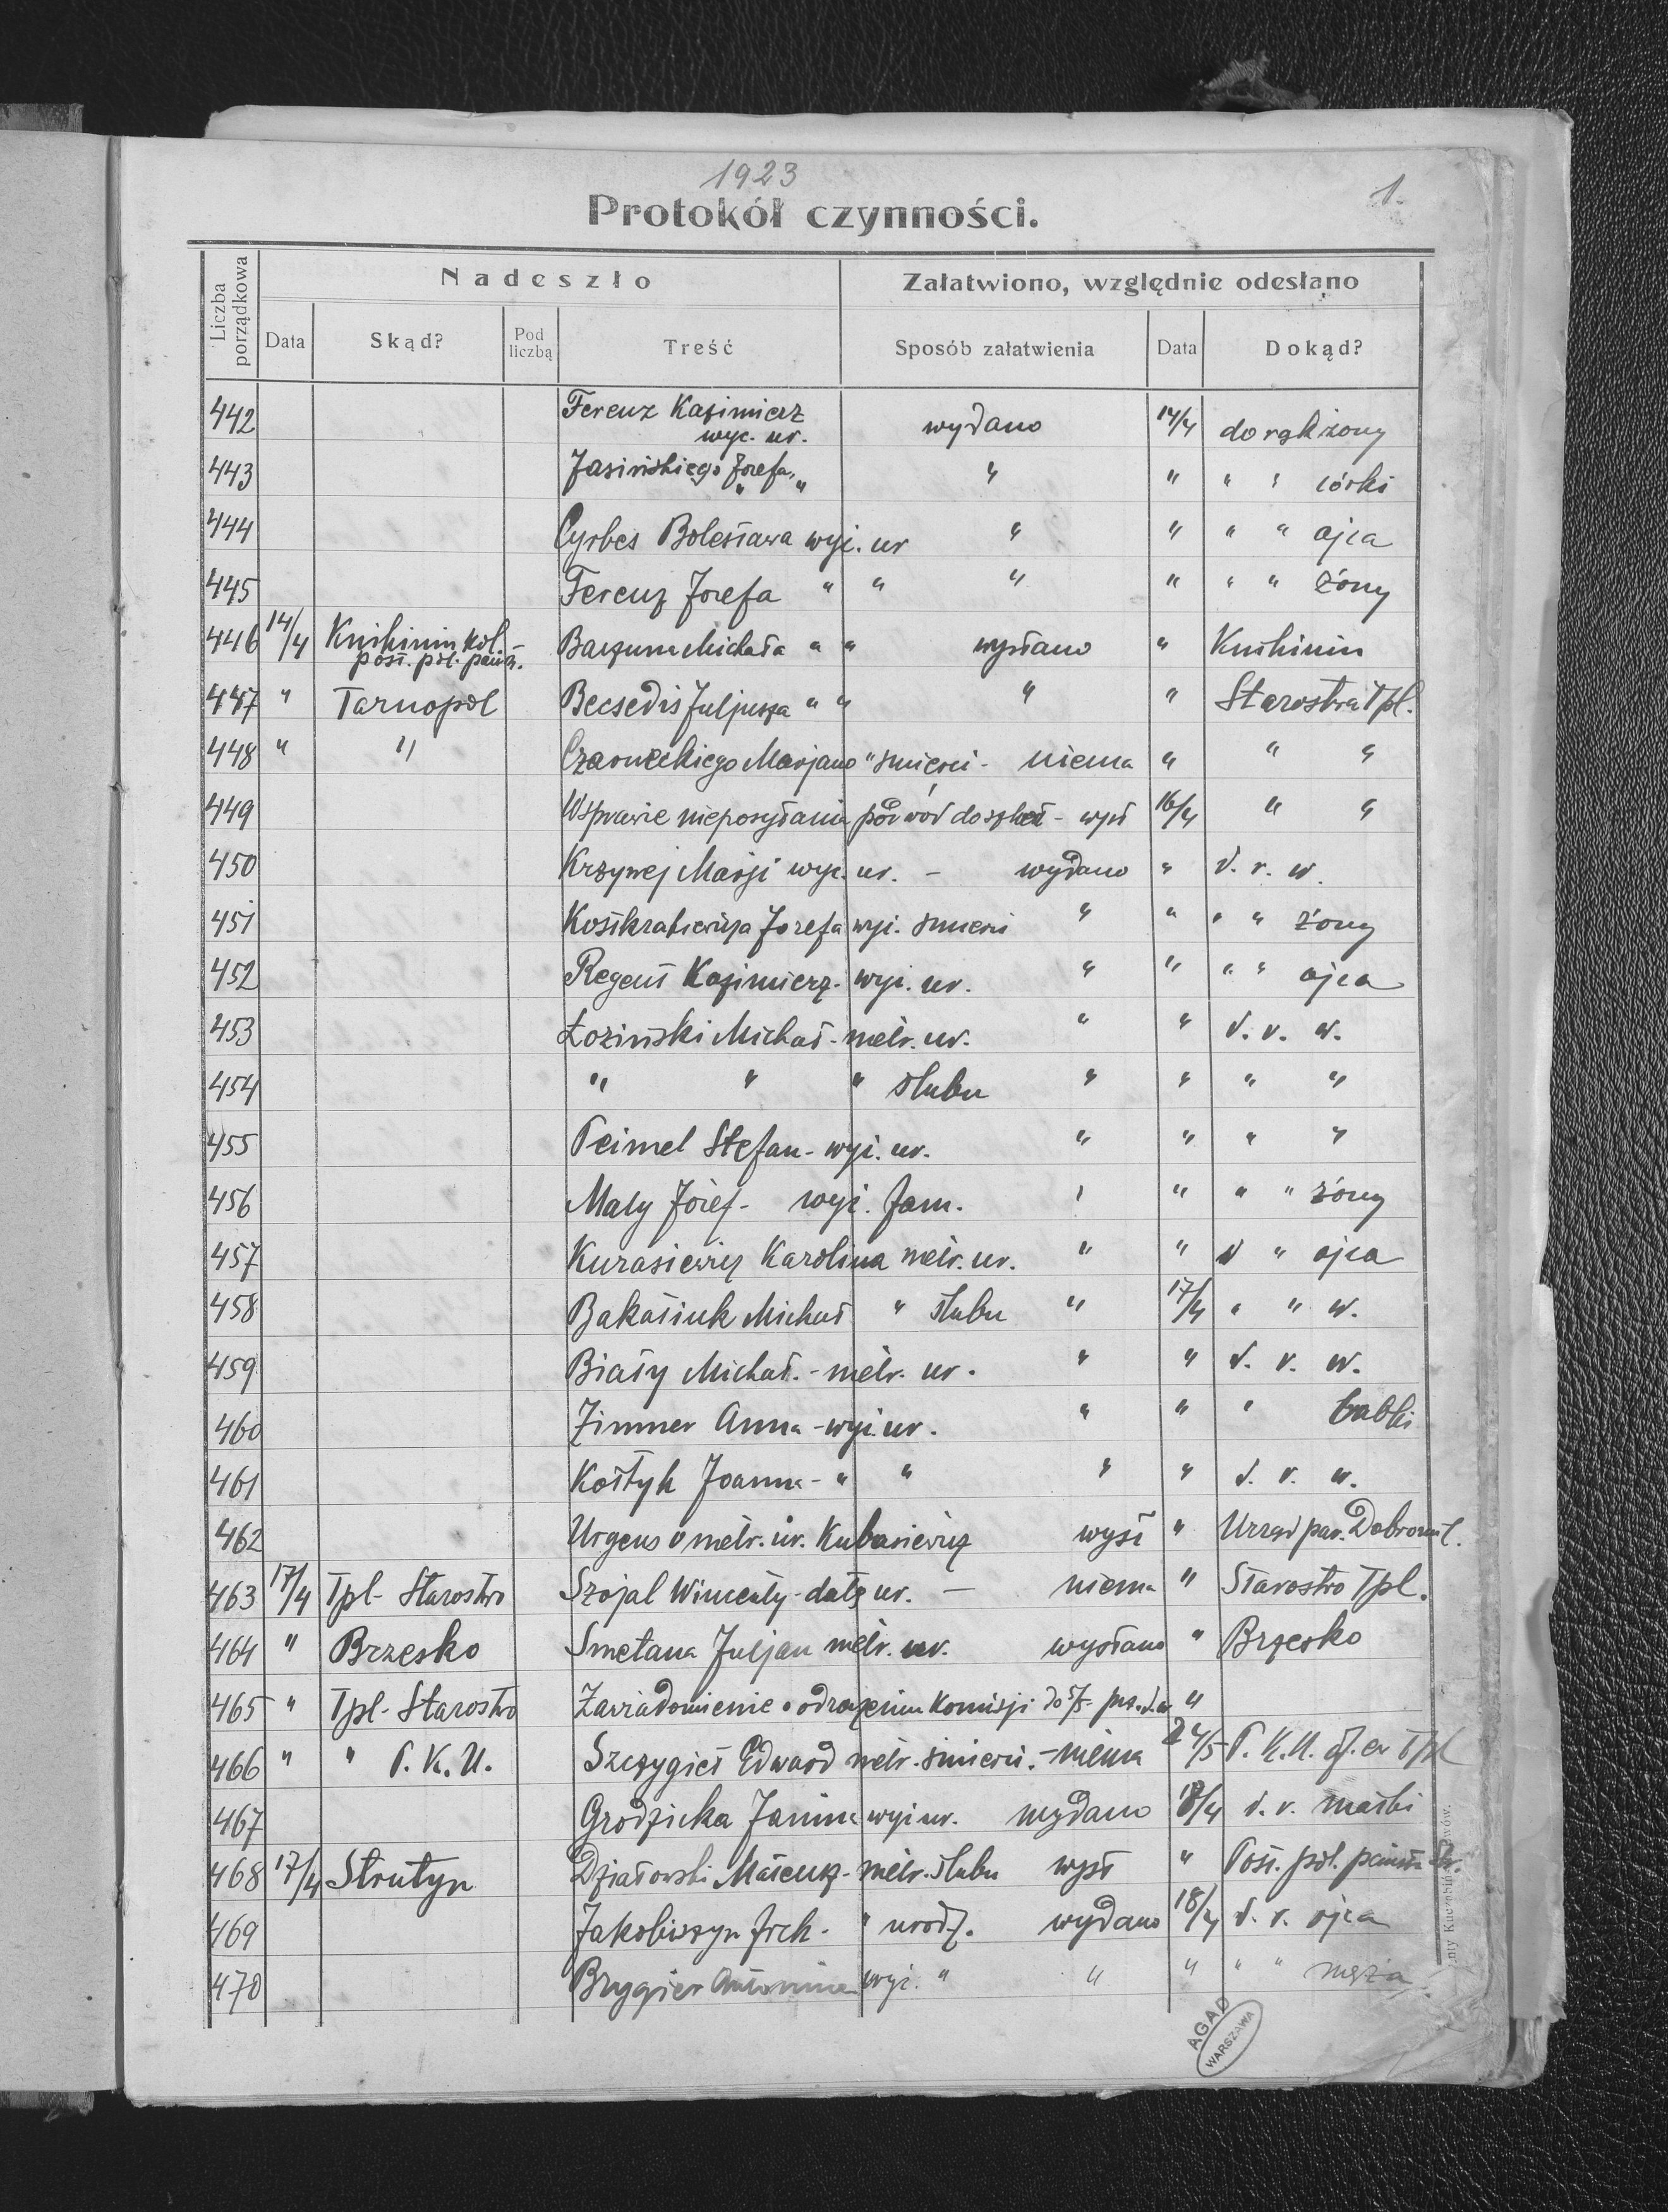 1923
1.
Protokół czynności.
Liczba porządkowa
Nadeszło
Załatwiono, względnie odesłano
Data Skąd? Pod liczbą Treść Sposób załatwienia Data Dokąd?
442 Ferenz Kazimierz wydano 14/4 do rąk żony
wyc. ur.
443 Jasińskiego Józefa " " " " " " córki
444 Cyrbes Bolesława wyc. ur " " " " ojca
445 Ferenz Józefa " " " " " " żony
446 14/4 Knihinin kol. Michała " " wysłano " Knihinin
post. pol. państ.
447 " Tarnopol Becsedis Juljusza " " " " Starostwa Tpl.
448 " " Czarneckiego Marjana " śmierci - niema " " "
449 W sprawie nieposyłania podwód do - wysł 16/4 " "
450 Krzywej Marji wyc. ur. - wydano " d. r. w.
451 Józefa wyc. śmierci " " " " żony
452 Kazimierz - wyc. ur. " " " " ojca
453 Łoziński Michał - metr. ur. " " d. r. w.
454 " " " ślubu " " " "
455 Peimel Stefan - wyc. ur. " " " "
456 Mały Józef - wyc. fam. " " " " żony
457 Kurasiewicz Karolina metr. ur. " " d " ojca
458 Bakaśiuk Michał " ślubu " 17/4 " " w.
459 Biały Michał. - metr. ur. " " d. r. w.
460 Zimmer Anna - wyc. ur. " " " babki
461 Kostyk Joanna - " " " " d. r. w.
462 Urgens o metr. ur. Kubasiewicz wysł " Urząd par. Dobromil.
463 17/4 Tpl - Starostwo Szojal Wincenty - datę ur. - niema " Starostwo Tpl.
464 " Brzesko Smetana Juljan metr. ur. wysłano " Brzesko
465 " Tpl - Starostwo Zawiadomienie o Komisji "
466 " " P. K. U. Szczygieł Edward metr. śmierci. - niema 24/5 P. K. U. Tpl
467 Grodzicka Janina wyc. ur. wydano 18/4 d. r. matki
468 17/4 Strutyn Działowski Mateusz - metr. ślubu wysł " Post. pol. państw.
469 Jakobiszyn - " urodz. wydano 18/4 d. r. ojca
470 Brygier Antonina wyc. " " " " " męża
AGAD
WARSZAWA